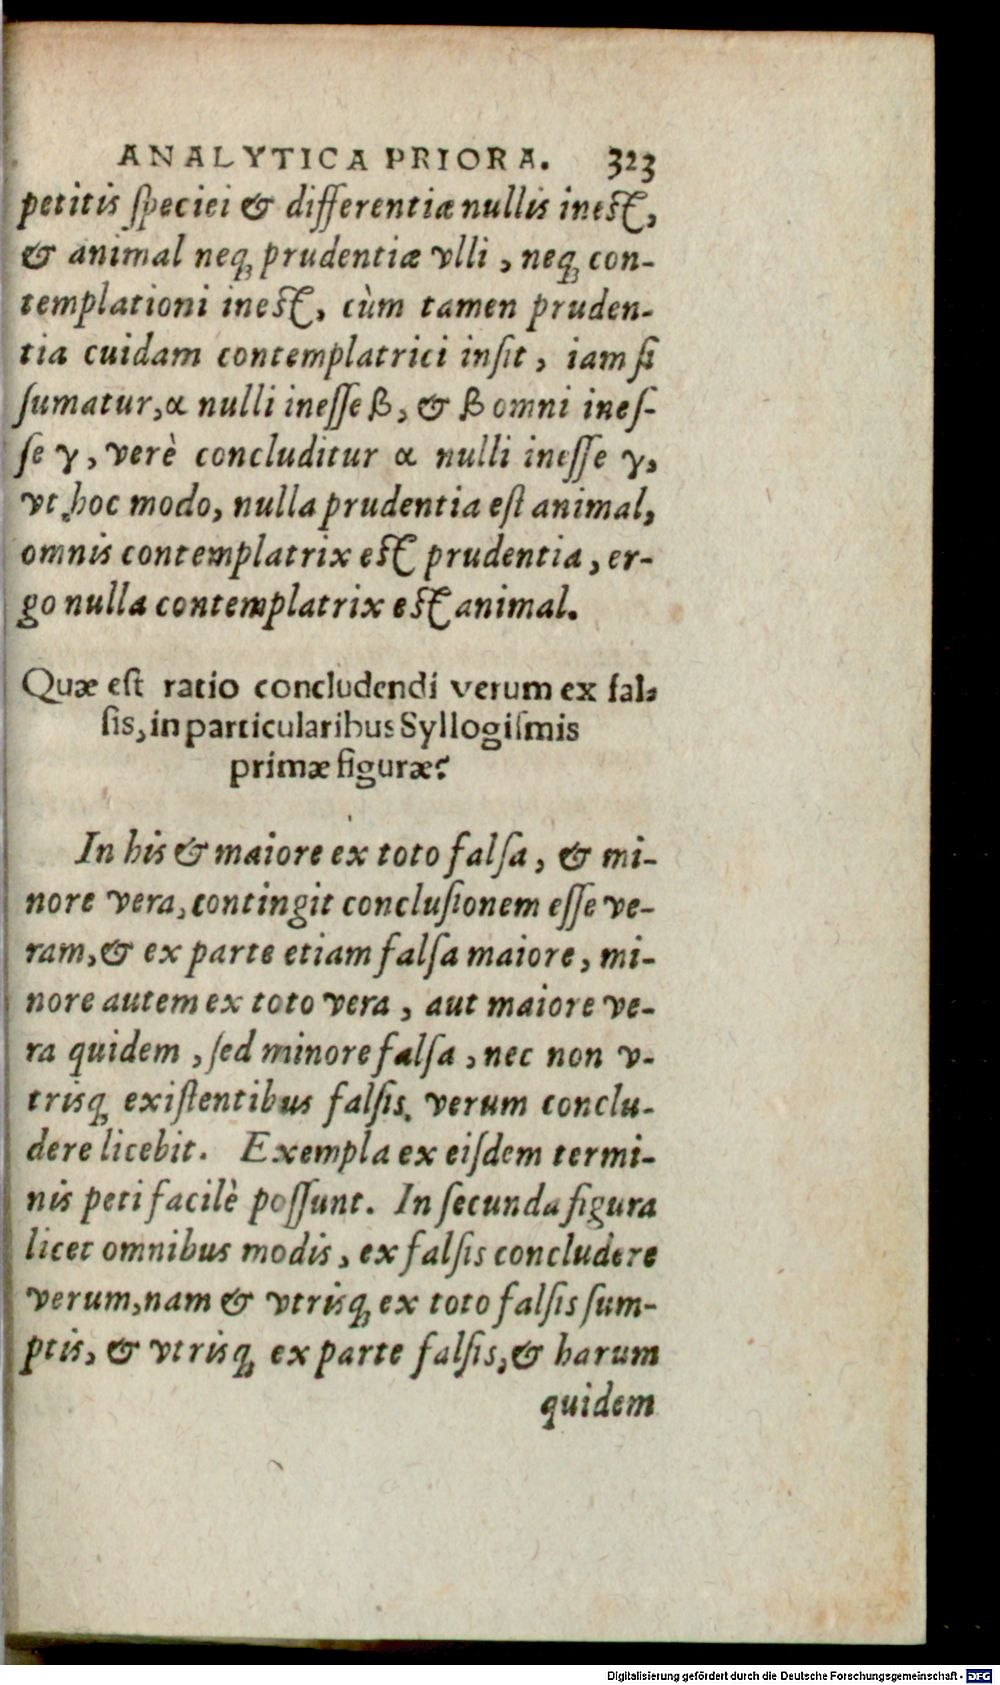 ANALYTICA PRIORA. 323
petitis ſpeciei & differentiæ nullis ineſt,
& animal neq; prudentiæ vlli, neq; con-
templationi ineſt, cùm tamen pruden-
tia cuidam contemplatrici inſit, iam ſi
ſumatur, α nulli ineſſe β, & β omni ineſ-
ſe γ, verè concluditur α nulli ineſſe γ,
vt hoc modo, nulla prudentia eſt animal,
omnis contemplatrix eſt prudentia, er-
go nulla contemplatrix eſt animal.
Quæ eſt ratio concludendi verum ex fal-
ſis, in particularibus Syllogiſmis
primæ figuræ?
In his & maiore ex toto falſa, & mi-
nore vera, contingit concluſionem eſſe ve-
ram, & ex parte etiam falſa maiore, mi-
nore autem ex toto vera, aut maiore ve-
ra quidem, ſed minore falſa, nec non v-
trisq; exiſtentibus falſis, verum conclu-
dere licebit. Exempla ex eiſdem termi-
nis peti facilè poſſunt. In ſecunda figura
licet omnibus modis, ex falſis concludere
verum, nam & vtrisq; ex toto falſis ſum-
ptis, & vtrisq; ex parte falſis, & harum
quidem
Digitalisierung gefördert durch die Deutsche Forschungsgemeinschaft - DFG